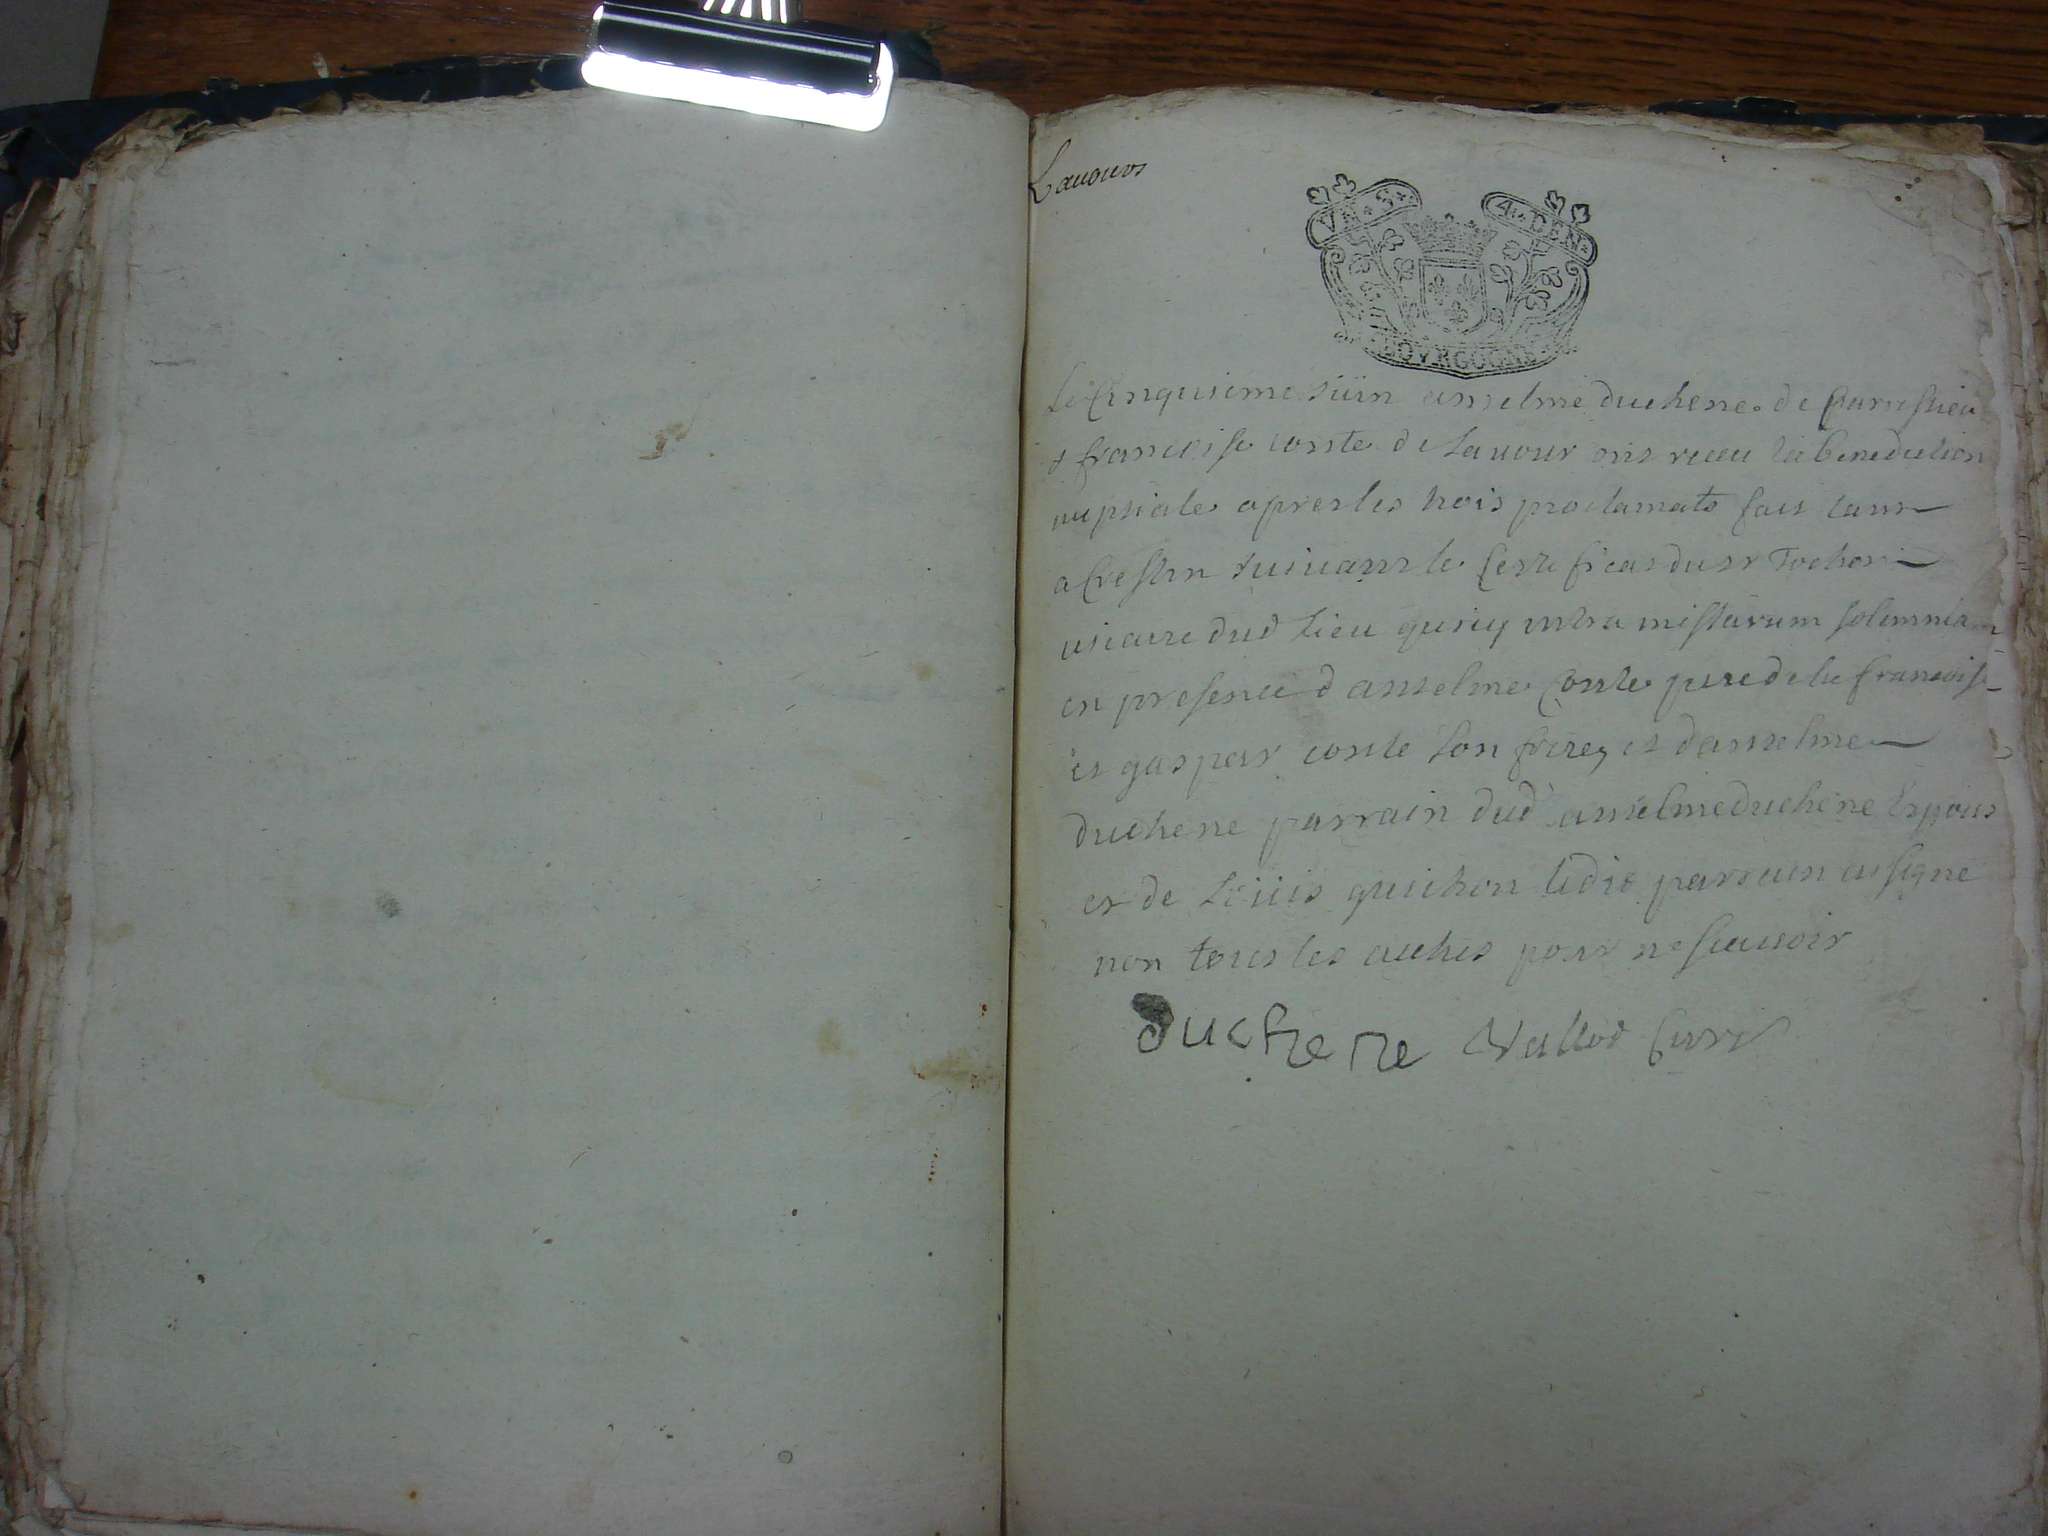 Lauours
VN. S.
4. DEN.
BOVRGOGNE
Le Cinquieme Juin anselme duchene de parrissieu
& francoise conte de Lauour ont receu la benediction
nuptiale apres les trois proclamats fait tant
a Cressin suiuant le Certificat du sr Tochon
uicaire dud lieu quicy intra missarum solemnia
en presence d anselme Conte pere de la francoise
et gaspar conte son frere, et danselme
duchene parrain dud anselme duchene Espoux
et de Loüis guichon ledit parrain a signe
non tous les autres pour ne scauoir
duchene Vallod Curé